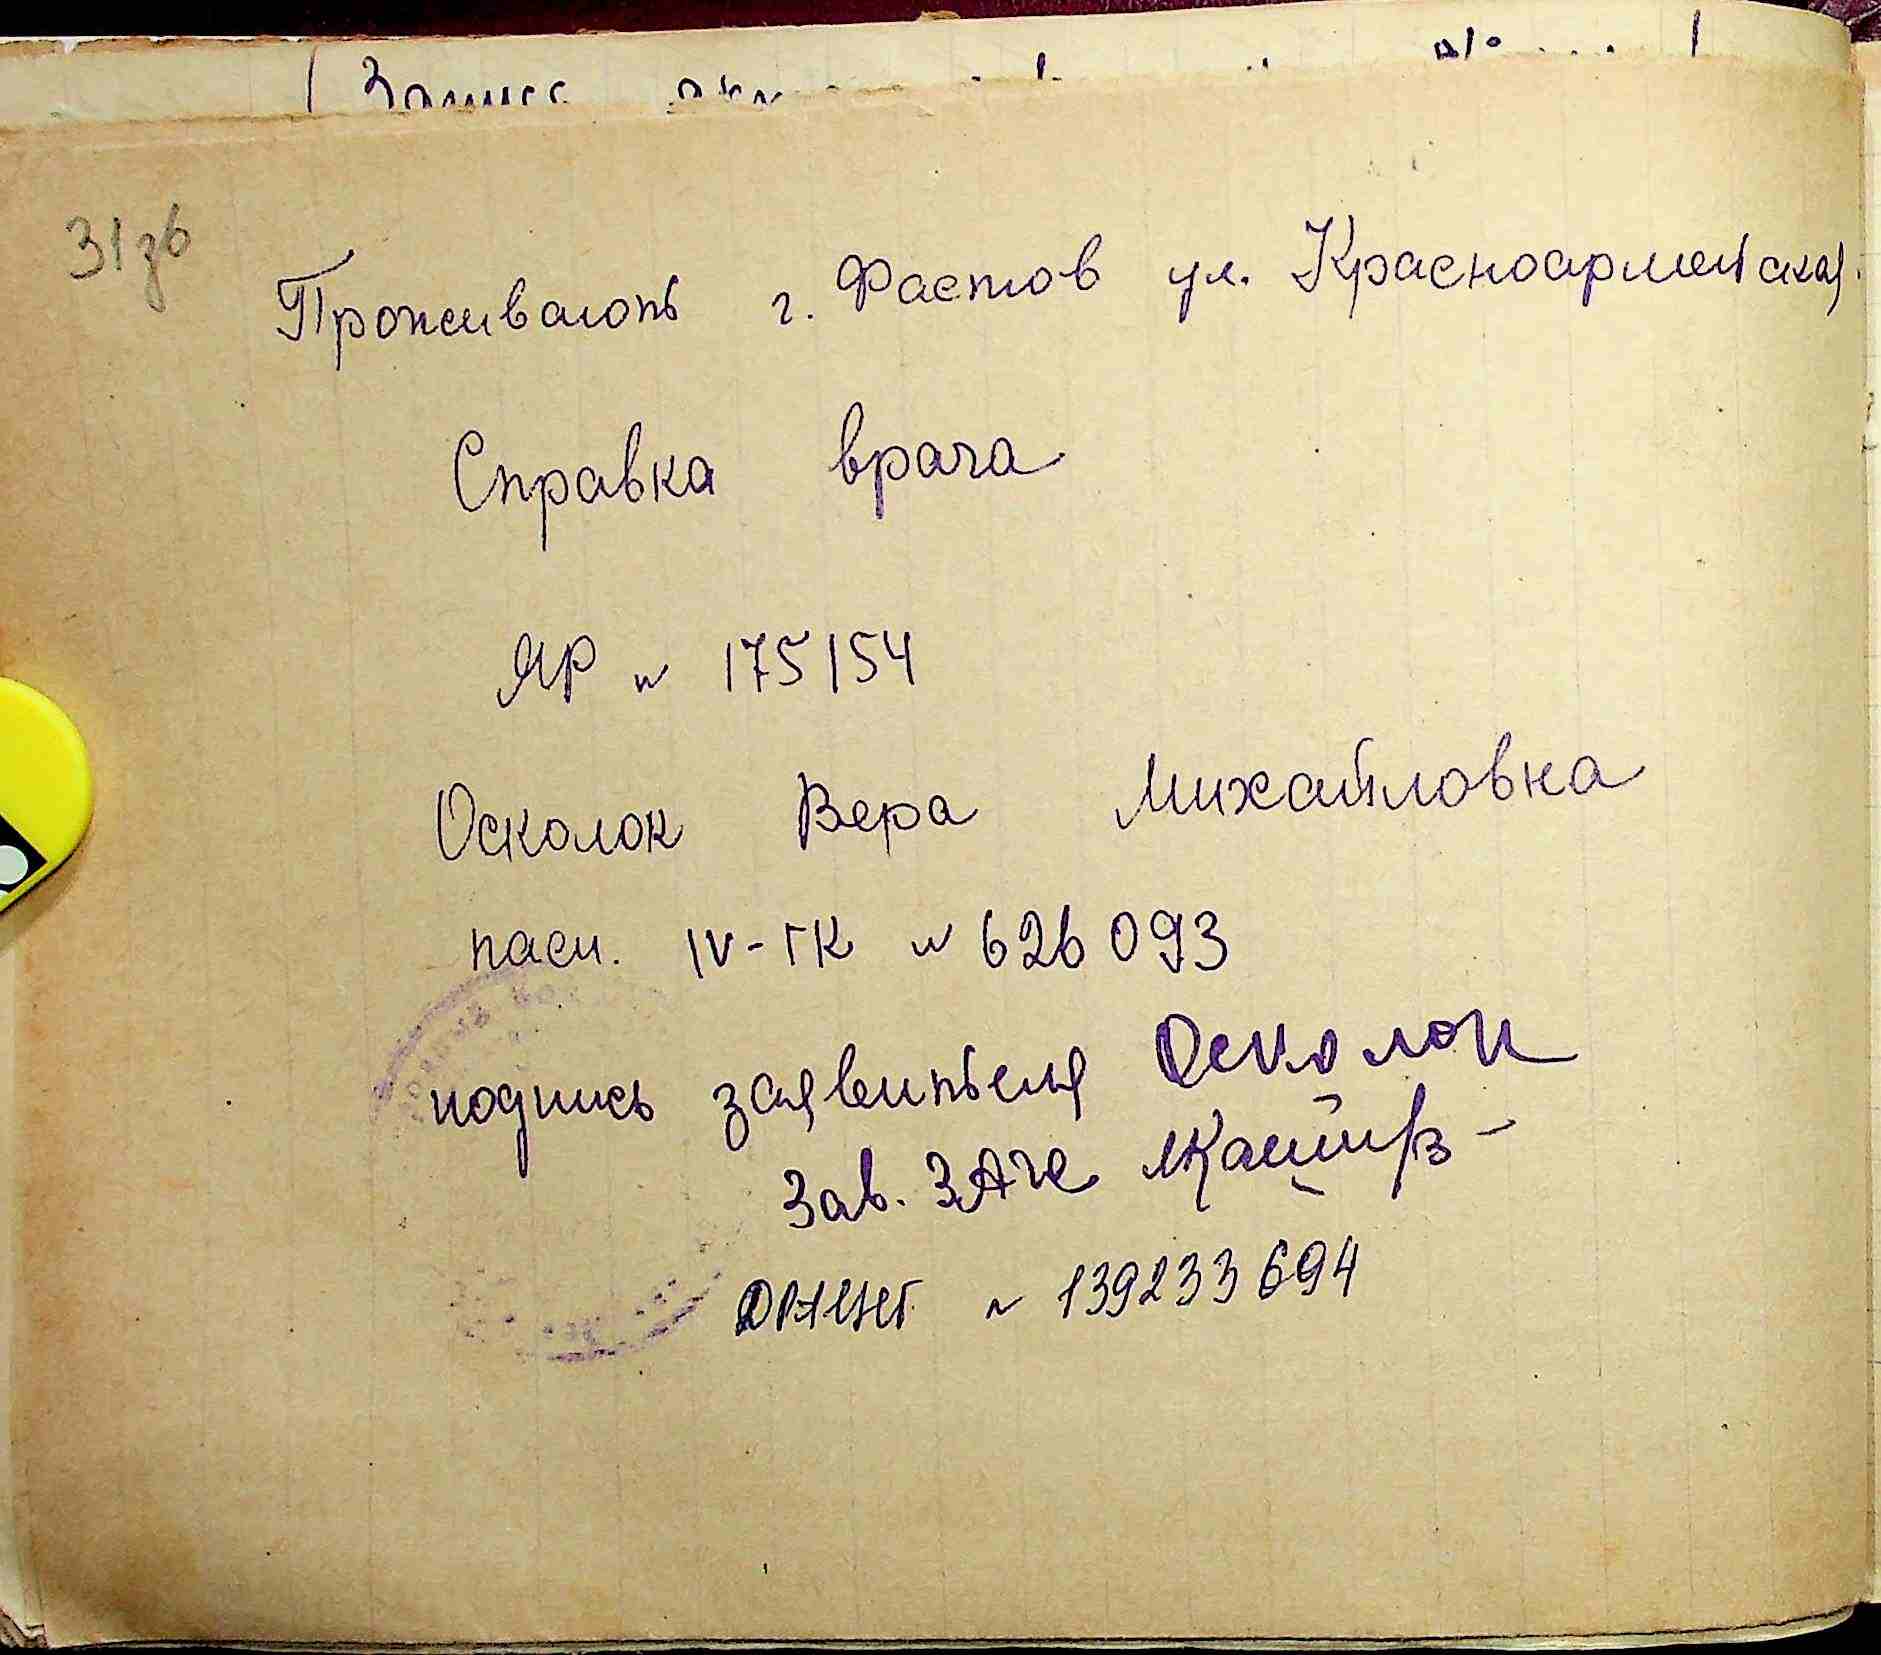 Запись
31зв
Проживають г. Фастов ул. Красноармейская.
Справка врача
ЯР № 175154
Осколок Вера Михайловна
пасп. IV-ГК № 626093
подпись заявителя Осколок
Зав. ЗАГС
№ 139233694